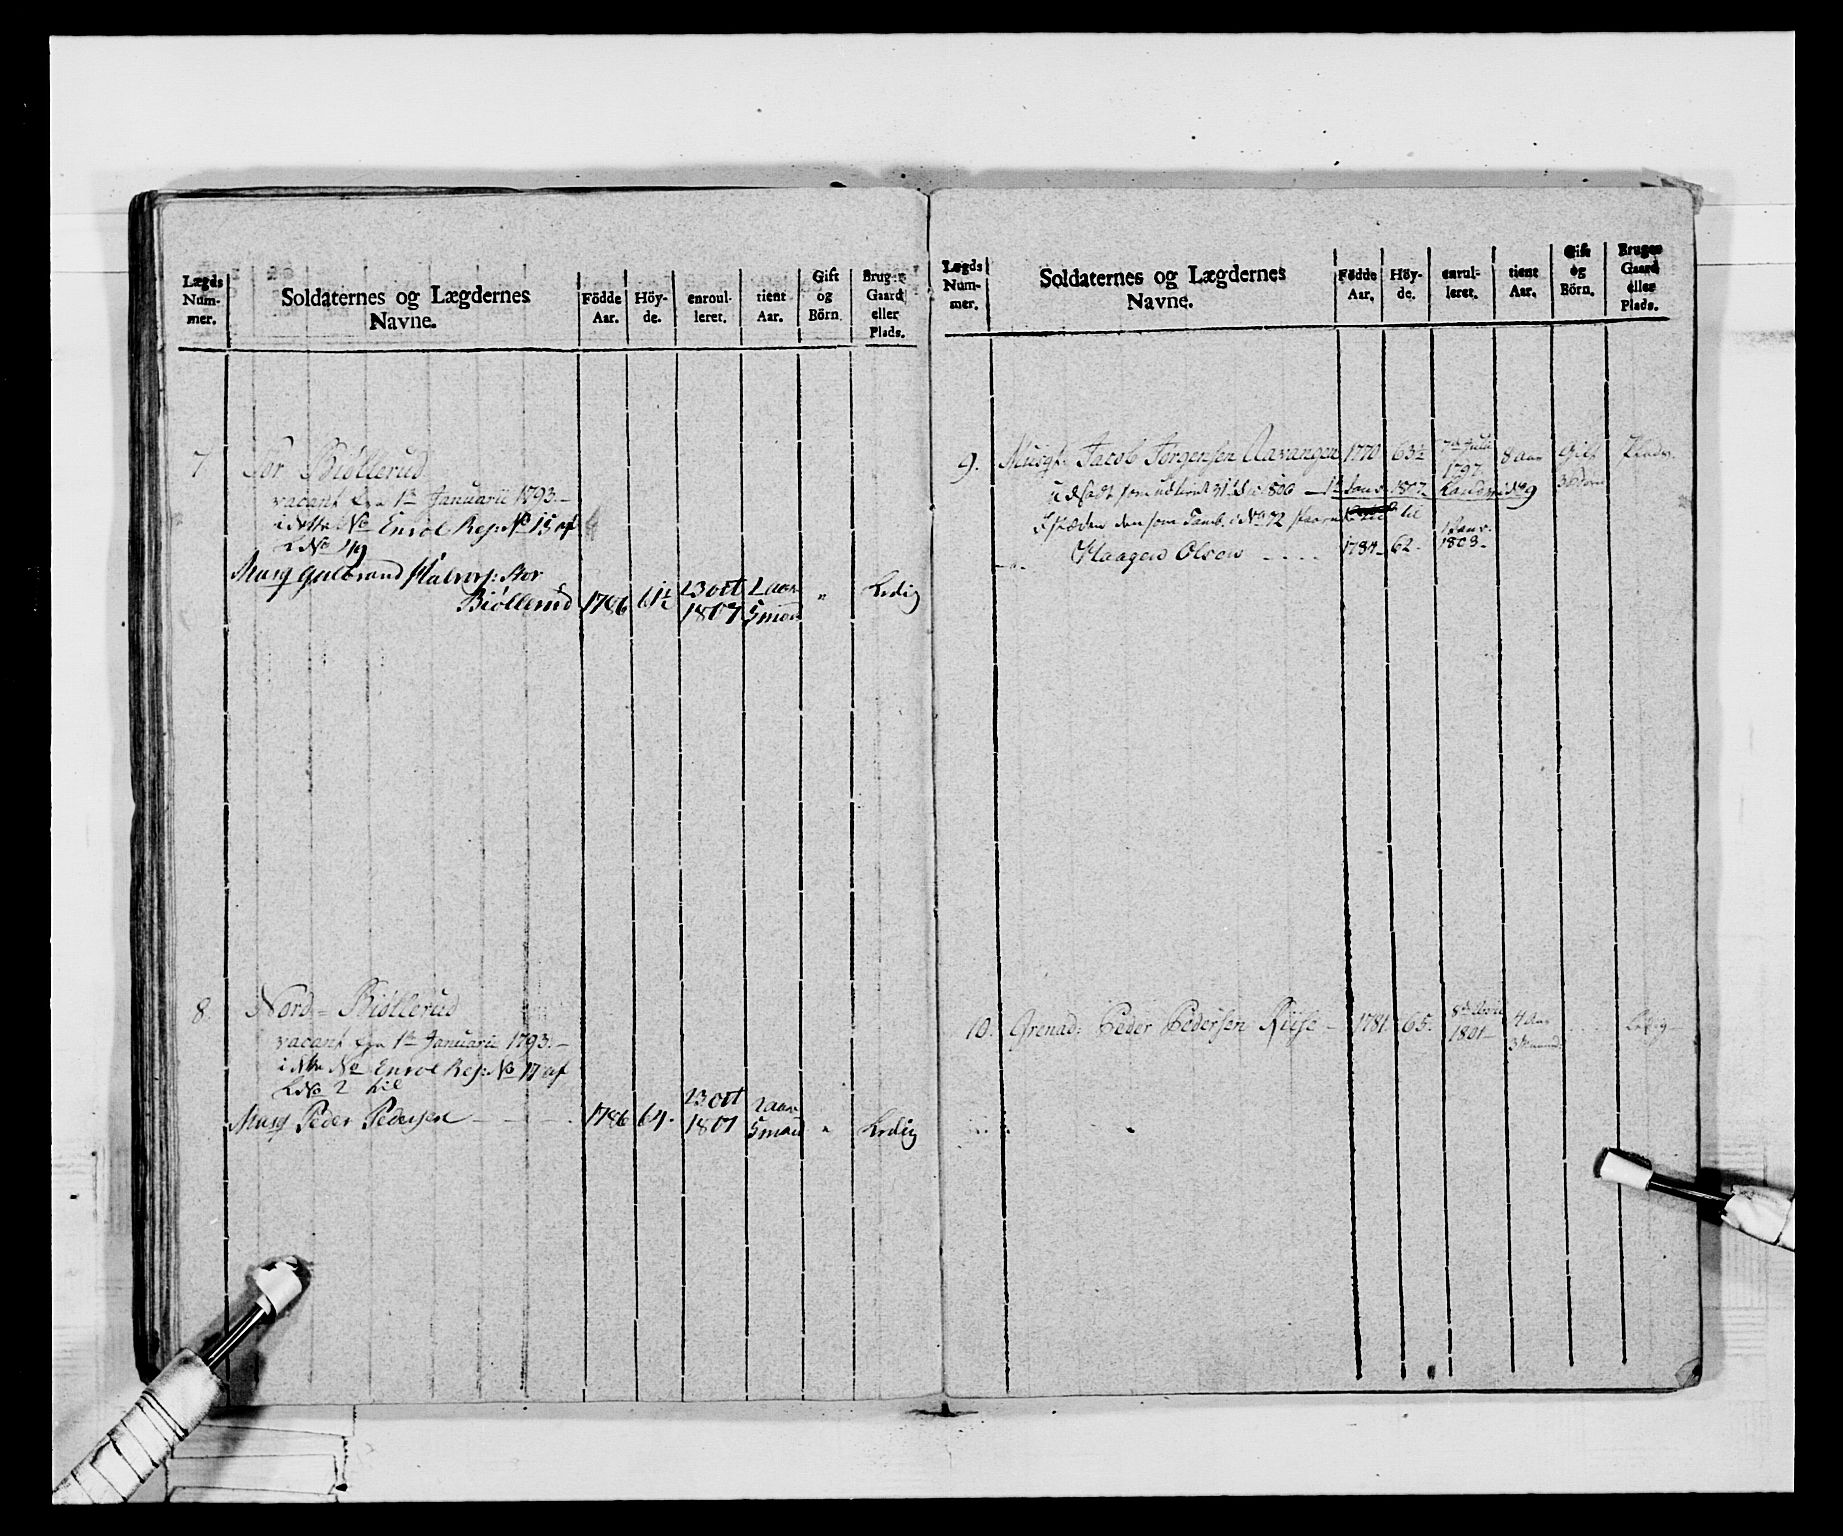 Lægds Num- mer.
Soldaternes og Lægdernes Navne.
Födde Aar.
Höy- de.
enroul- leret.
tient Aar.
Gift og Börn
Bruger Gaard eller Plads.
7
Biöllerud
vacant fra 1te Januarii 1793.
No Enrol No 15 af
L No 49
Musq Gulbrand Halvors: Stor
Biöllerud 1786 61½ 23 oct 1807 2 aar 5 maan " Ledig
8
Nord - Biöllerud
vacant fra 1te Januarii 1793.
No Enrol No 17 af
L No 2 til
Musq Peder Pedersen 1786 64. 23 oct 1807 2 aar 5 maan " Ledig
Lægds Num- mer.
Soldaternes og Lægdernes Navne.
Födde Aar.
Höy- de.
enrul- leret.
tient Aar.
Gift og Börn.
Bruger Gaard eller Plads.
9. Musqt: Jacob Jörgensen Aavangen 1770 63½ 7de Julii 1797. 8 Aar Gift 3 Börn Plads.
udsadt som 1806 1te Janv. 1807. No 9
som Tamb. i No 72 til
Haagen Olsen 1784 62. 1 Janv. 1803.
10. Grenad: Peder Pedersen Riise 1781 65. 1801 4 Aar 3 Maaned Ledig